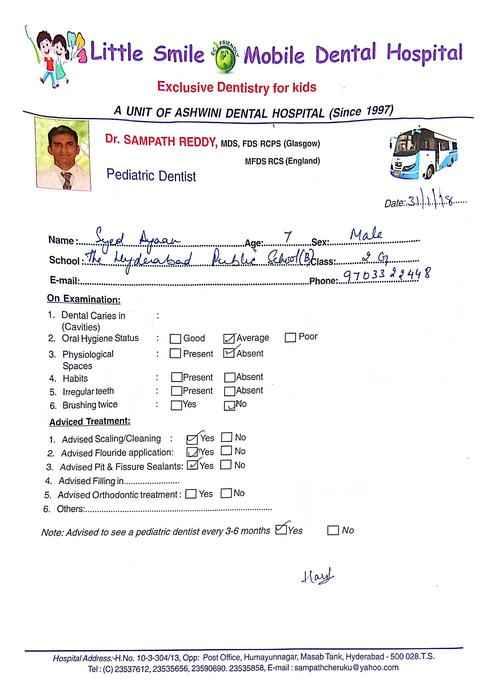 Little Smile ECO FRIENDLY Mobile Dental Hospital
Exclusive Dentistry for kids
A UNIT OF ASHWINI DENTAL HOSPITAL (Since 1997)
Dr. SAMPATH REDDY, MDS, FDS RCPS (Glasgow)
MFDS RCS (England)
Pediatric Dentist
Date: 31/1/18
Name: Syed Ayaan Age: 7 Sex: Male
School: The Hyderabad Public School(B) Class: 2 G
E-mail: Phone: 9703322448
On Examination:
1. Dental Caries in :
(Cavities)
2. Oral Hygiene Status : Good Average Poor
3. Physiological : Present Absent
Spaces
4. Habits : Present Absent
5. Irregular teeth : Present Absent
6. Brushing twice : Yes No
Adviced Treatment:
1. Advised Scaling/Cleaning : Yes No
2. Advised Flouride application: Yes No
3. Advised Pit & Fissure Sealants: Yes No
4. Advised Filling in......................
5. Advised Orthodontic treatment : Yes No
6. Others:..............................................................
Note: Advised to see a pediatric dentist every 3-6 months Yes No
Hospital Address:-H.No. 10-3-304/13, Opp: Post Office, Humayunnagar, Masab Tank, Hyderabad - 500 028.T.S.
Tel : (C) 23537612, 23535656, 23590690. 23535858, E-mail : sampathcheruku@yahoo.com